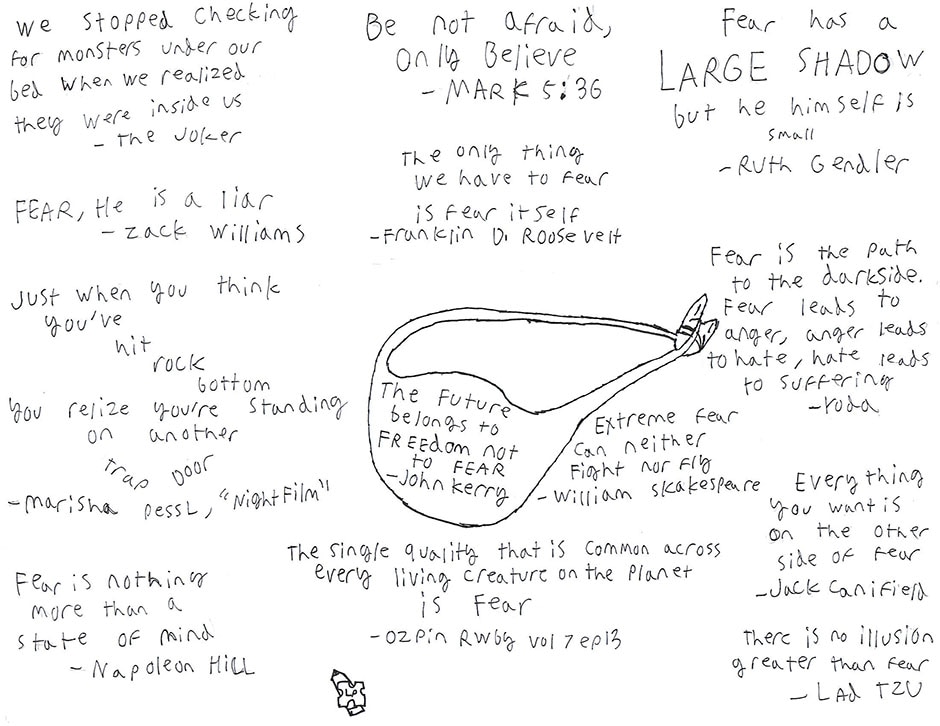 we stopped checking
for monsters under our
bed when we realized
they were inside us
- The Joker
Be not afraid,
Only Believe
- MARK 5:36
Fear has a
LARGE SHADOW
but he himself is
small
- Ruth Gendler
The only thing
we have to fear
is fear itself
- Franklin D. Roosevelt
FEAR, He is a liar
- Zack Williams
Just when you think
you've
hit
rock
bottom
you relize you're standing
on another
trap Door
- Marisha Pessl, "Night Film"
Fear is the path
to the darkside.
Fear leads to
anger, anger leads
to hate, hate leads
to suffering
- Yoda
The Future
belongs to
FREEdom not
to FEAR
- John Kerry
Extreme fear
can neither
Fight nor fly
- William Skakespeare
Everything
you want is
on the other
side of fear
- Jack Canifield
The single quality that is common across
every living creature on the planet
is fear
- Ozpin Rwby vol 7 ep13
Fear is nothing
more than a
state of mind
- Napoleon Hill
There is no illusion
greater than fear
- LAd TZU